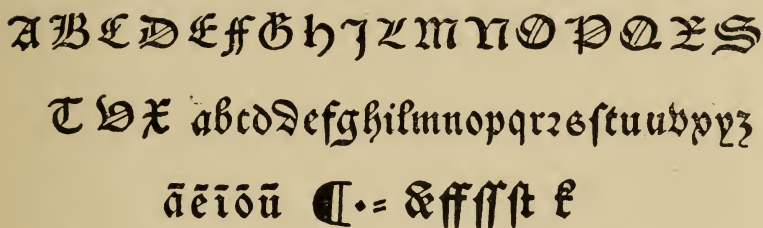 A B C D E F G H I L M N O P Q R S
T V X abcdꝺefghilmnopqrꝛsſtuuvxyz
āēīōū ¶ · = & ff ſſ ſt